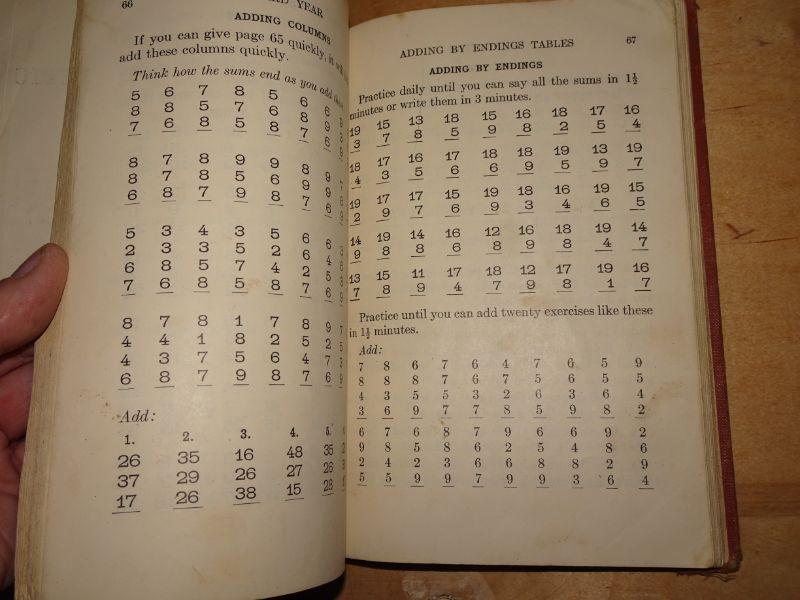 66
YEAR
ADDING COLUMNS
If you can give page 65 quickly,
add these columns quickly.
Think how the sums end as you add
5 6 7 8 5 6 6
8 8 5 7 6 8 9
7 6 8 5 8 7 6
8 7 8 9 9 8 9
8 7 8 5 6 9 9
6 8 7 9 8 7 6
5 3 4 3 5 6 6
2 3 3 5 2 6 4
6 8 5 7 4 2 5
7 6 8 5 8 7 6
8 7 8 1 7 8 9 7
4 4 1 8 2 5 2 5
4 3 7 5 6 4 7
6 8 7 9 8 7 6 9
Add:
1. 2. 3. 4. 5.
26 35 16 48 35
37 29 26 27 26
17 26 38 15 28
ADDING BY ENDINGS TABLES 67
ADDING BY ENDINGS
Practice daily until you can say all the sums in 1½
minutes or write them in 3 minutes.
19 15 13 18 15 16 18 17 16
3 7 8 5 9 8 2 5 4
18 17 16 17 18 18 19 13 19
4 3 5 6 6 9 5 9 7
19 17 17 15 19 18 16 19 15
2 9 7 6 9 3 4 6 5
14 19 14 16 12 16 18 19 14
9 8 8 6 8 9 8 4 7
13 15 11 17 18 12 17 19 16
7 8 9 4 7 9 8 1 7
Practice until you can add twenty exercises like these
in 1½ minutes.
Add:
7 8 6 7 6 4 7 6 5 9
8 8 8 7 6 7 5 6 5 5
4 3 5 5 3 2 6 3 6 4
3 6 9 7 7 8 5 9 8 2
6 7 6 8 7 9 6 6 9 2
9 8 5 8 6 2 5 4 8 6
2 4 2 3 6 6 8 8 2 9
5 5 9 9 7 9 9 3 6 4